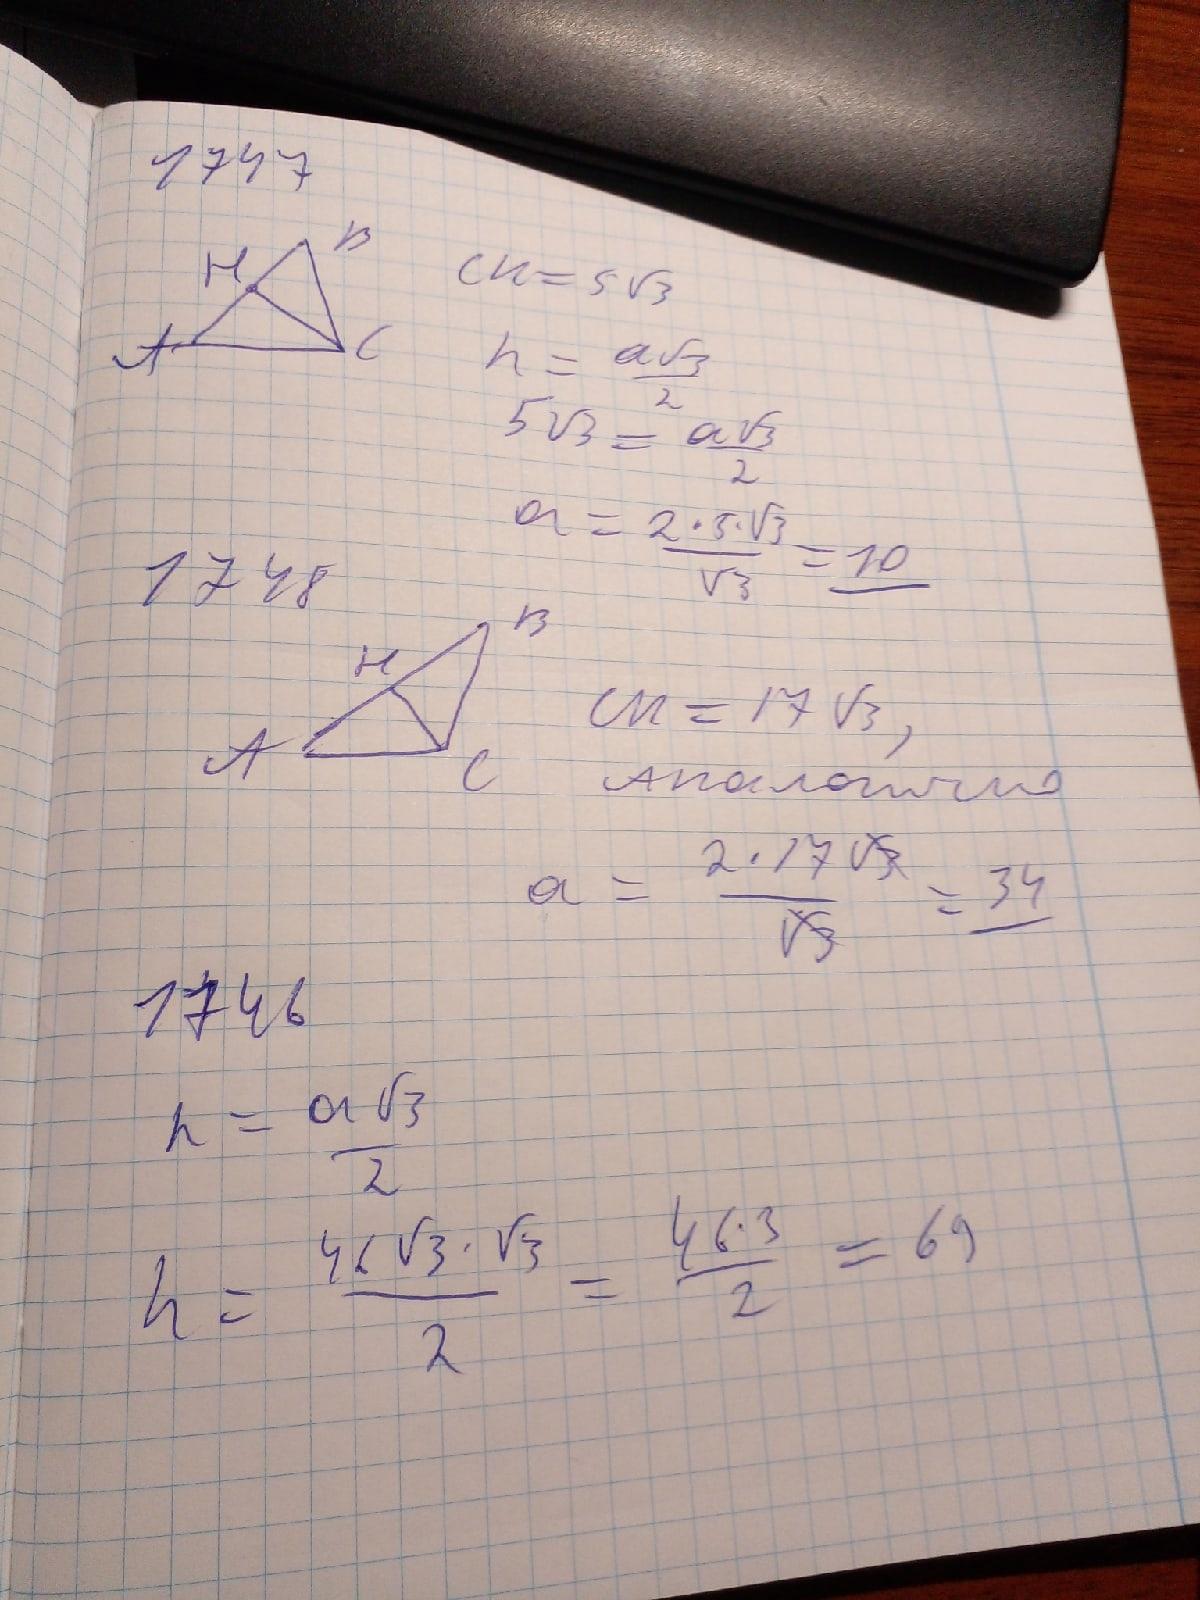 1747
B
H
A
C
CH = 5√3
h = a√3/2
5√3 = a√3/2
a = 2·5·√3/√3 = 10
1748
B
H
A
C
CH = 17√3,
Аналогично
a = 2·17√3/√3 = 34
1746
h = a√3/2
h = 46√3·√3/2 = 46·3/2 = 69